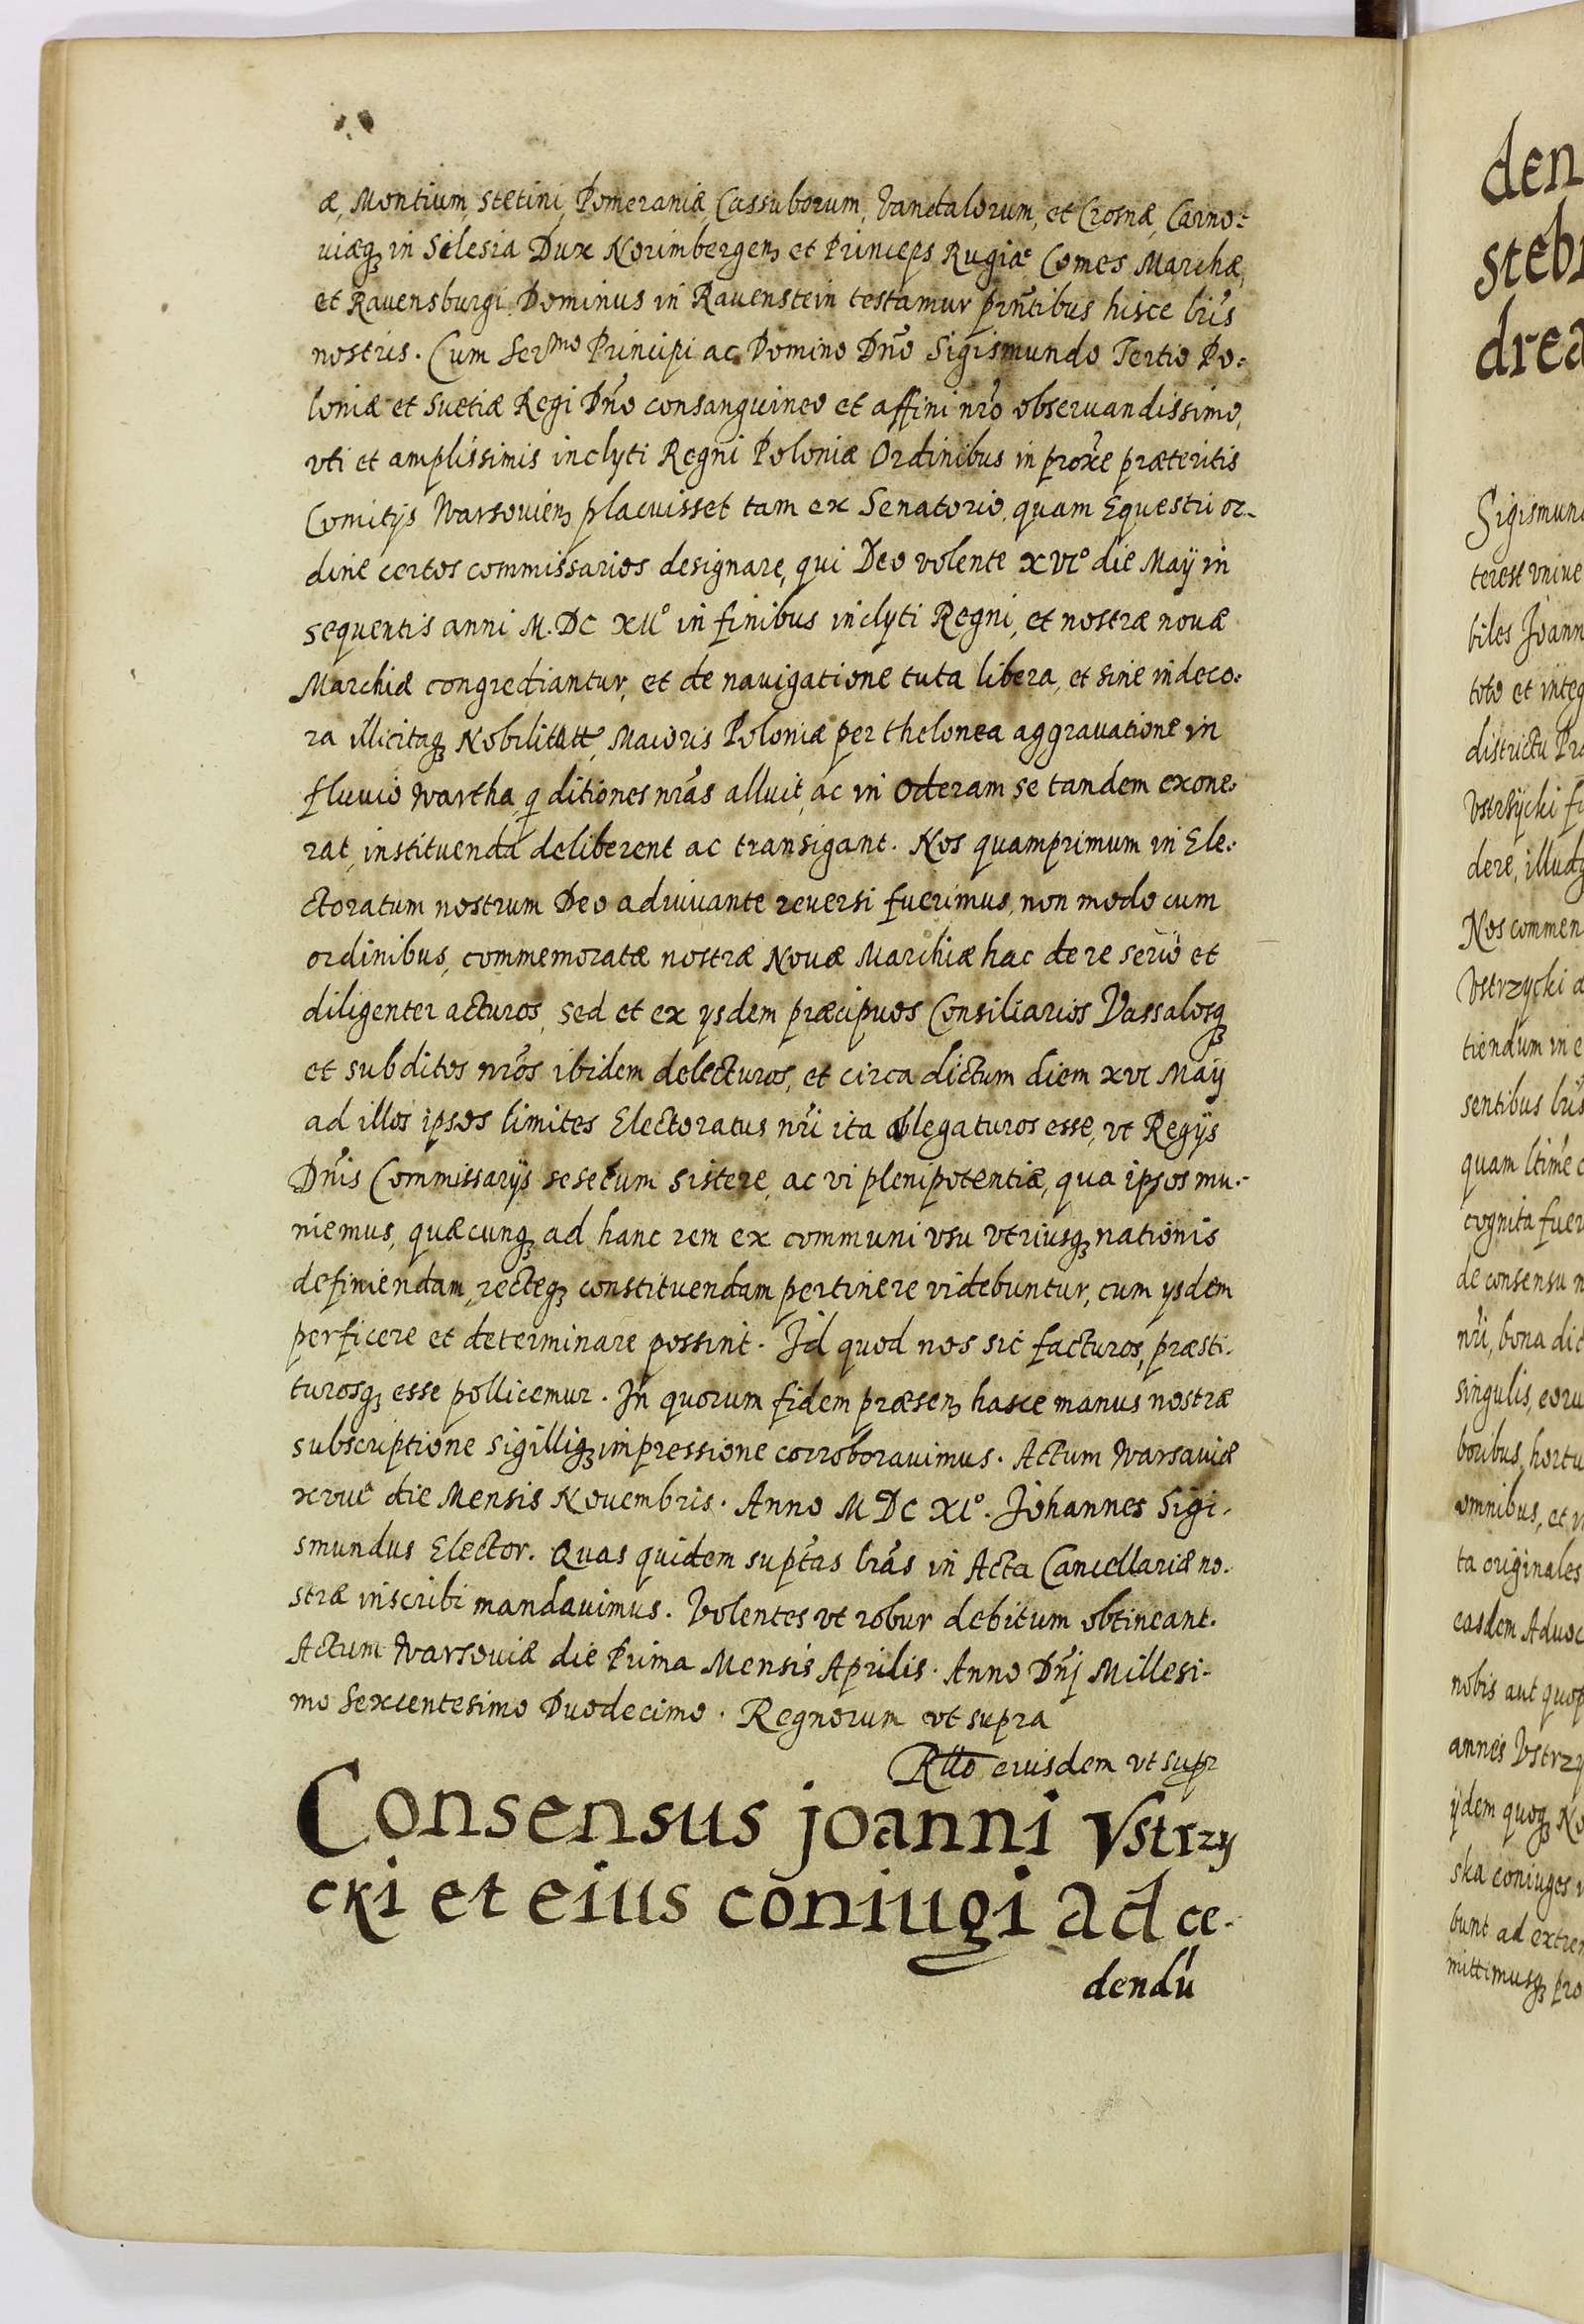 æ, Montium, Stetini, Pomeraniæ, Cassuborum, Vandalorum, et Crosnæ, Carno:
viæq3 in Silesia Dux Norimbergen3 et Princeps Rugiæ Comes Marchæ,
et Ravensburgi Dominus in Ravenstein testamur prñtibus hisce lrĩs
nostris. Cum Ser^mo Principi ac Domino Dño Sigismundo Tertio Po:
loniæ et Suetiæ Regi Dño consanguineo et affini nr̃o observandissimo,
vti et amplissimis inclyti Regni Poloniæ Ordinibus in prox̃e præteritis
Comitijs Warsovien3 placuisset tam ex Senatorio, quam Equestri or-
dine certos commissarios designare, qui Deo volente xvi° die Maÿ in
sequentis anni M.DC xii° in finibus inclyti Regni, et nostræ novæ
Marchiæ congrediantur, et de navigatione tuta libera, et sine indeco:
ra illicitaq3 Nobilitatt, Maioris Poloniæ per thelonea aggravatione in
fluvio Wartha, q̃ ditiones nr̃as alluit, ac in Oderam se tandem exone:
rat, instituenda deliberent ac transigant. Nos quamprimum in Ele:
ctoratum nostrum Deo adiuvante reversi fuerimus, non modo cum
ordinibus, commemoratæ nostræ Novæ Marchiæ hac de re serio et
diligenter acturos, sed et ex ysdem præcipuos Consiliarios Vassalosq3
et subditos nr̃os ibidem delecturos, et circa dictum diem xvi Maÿ
ad illos ipsos limites Electoratus nr̃i ita ablegaturos esse, vt Regÿs
Dñis Commissarÿs sese tum sistere, ac vi plenipotentiæ, qua ipsos mu:
niemus, quæcunq3 ad hanc rem ex communi vsu vtriusq3 nationis
definiendam, recteq3 constituendam pertinere videbuntur, cum ysdem
perficere et determinare possint. Id quod nos sic facturos, præsti-
turosq3 esse pollicemur. In quorum fidem præsen3 hasce manus nostræ
subscriptione sigilliq3 impressione corroboravimus. Actum Warsaviæ
xviii° die Mensis Novembris. Anno M DC XI°. Johannes Sigi-
smundus Elector. Quas quidem suptas̃ lrãs in Acta Cancellariæ no-
stræ inscribi mandavimus. Volentes vt robur debitum obtineant.
Actum Warsoviæ die Prima Mensis Aprilis. Anno Dñj Millesi-
mo Sexcentesimo Duodecimo. Regnorum vt supra
Rtto eiusdem vt supr
Consensus joanni Vstrzy
cki et eius coniugi ad ce-
dendũ
den
dre
Sigismun
terest vnive
biles Joann
toto et integ
districtu Pr
Vstrzÿcki f
dere, illudq
Nos commen
Vstrzycki a
tiendum in e
sentibus lrĩs
quam ltime c
cognita fuer
de consensu n
nr̃i, bona dic
singulis, eoru
boribus, hortu
omnibus, et v
ta originales
easdem Advoc
nobis aut quop
annes Vstrzy
ÿdem quoq3 No
ska coniuges v
bunt ad extre
mittimusq3 pro